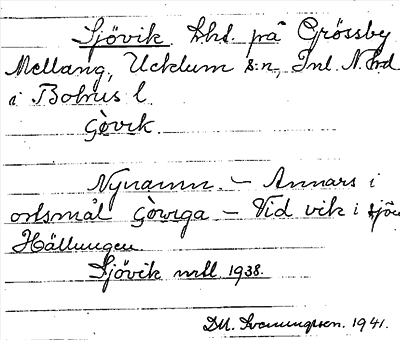 Sjövik. lht. på Grössby
Mellang, Ucklum s:n, Inl. N. hd
i Bohus l.
Çòvik.
Nynamn. – Annars i
ortsmål Çòwiga – Vid vik i sjön
Hällungen.
Sjövik mtll 1938.
DM. Svenningsson. 1941.